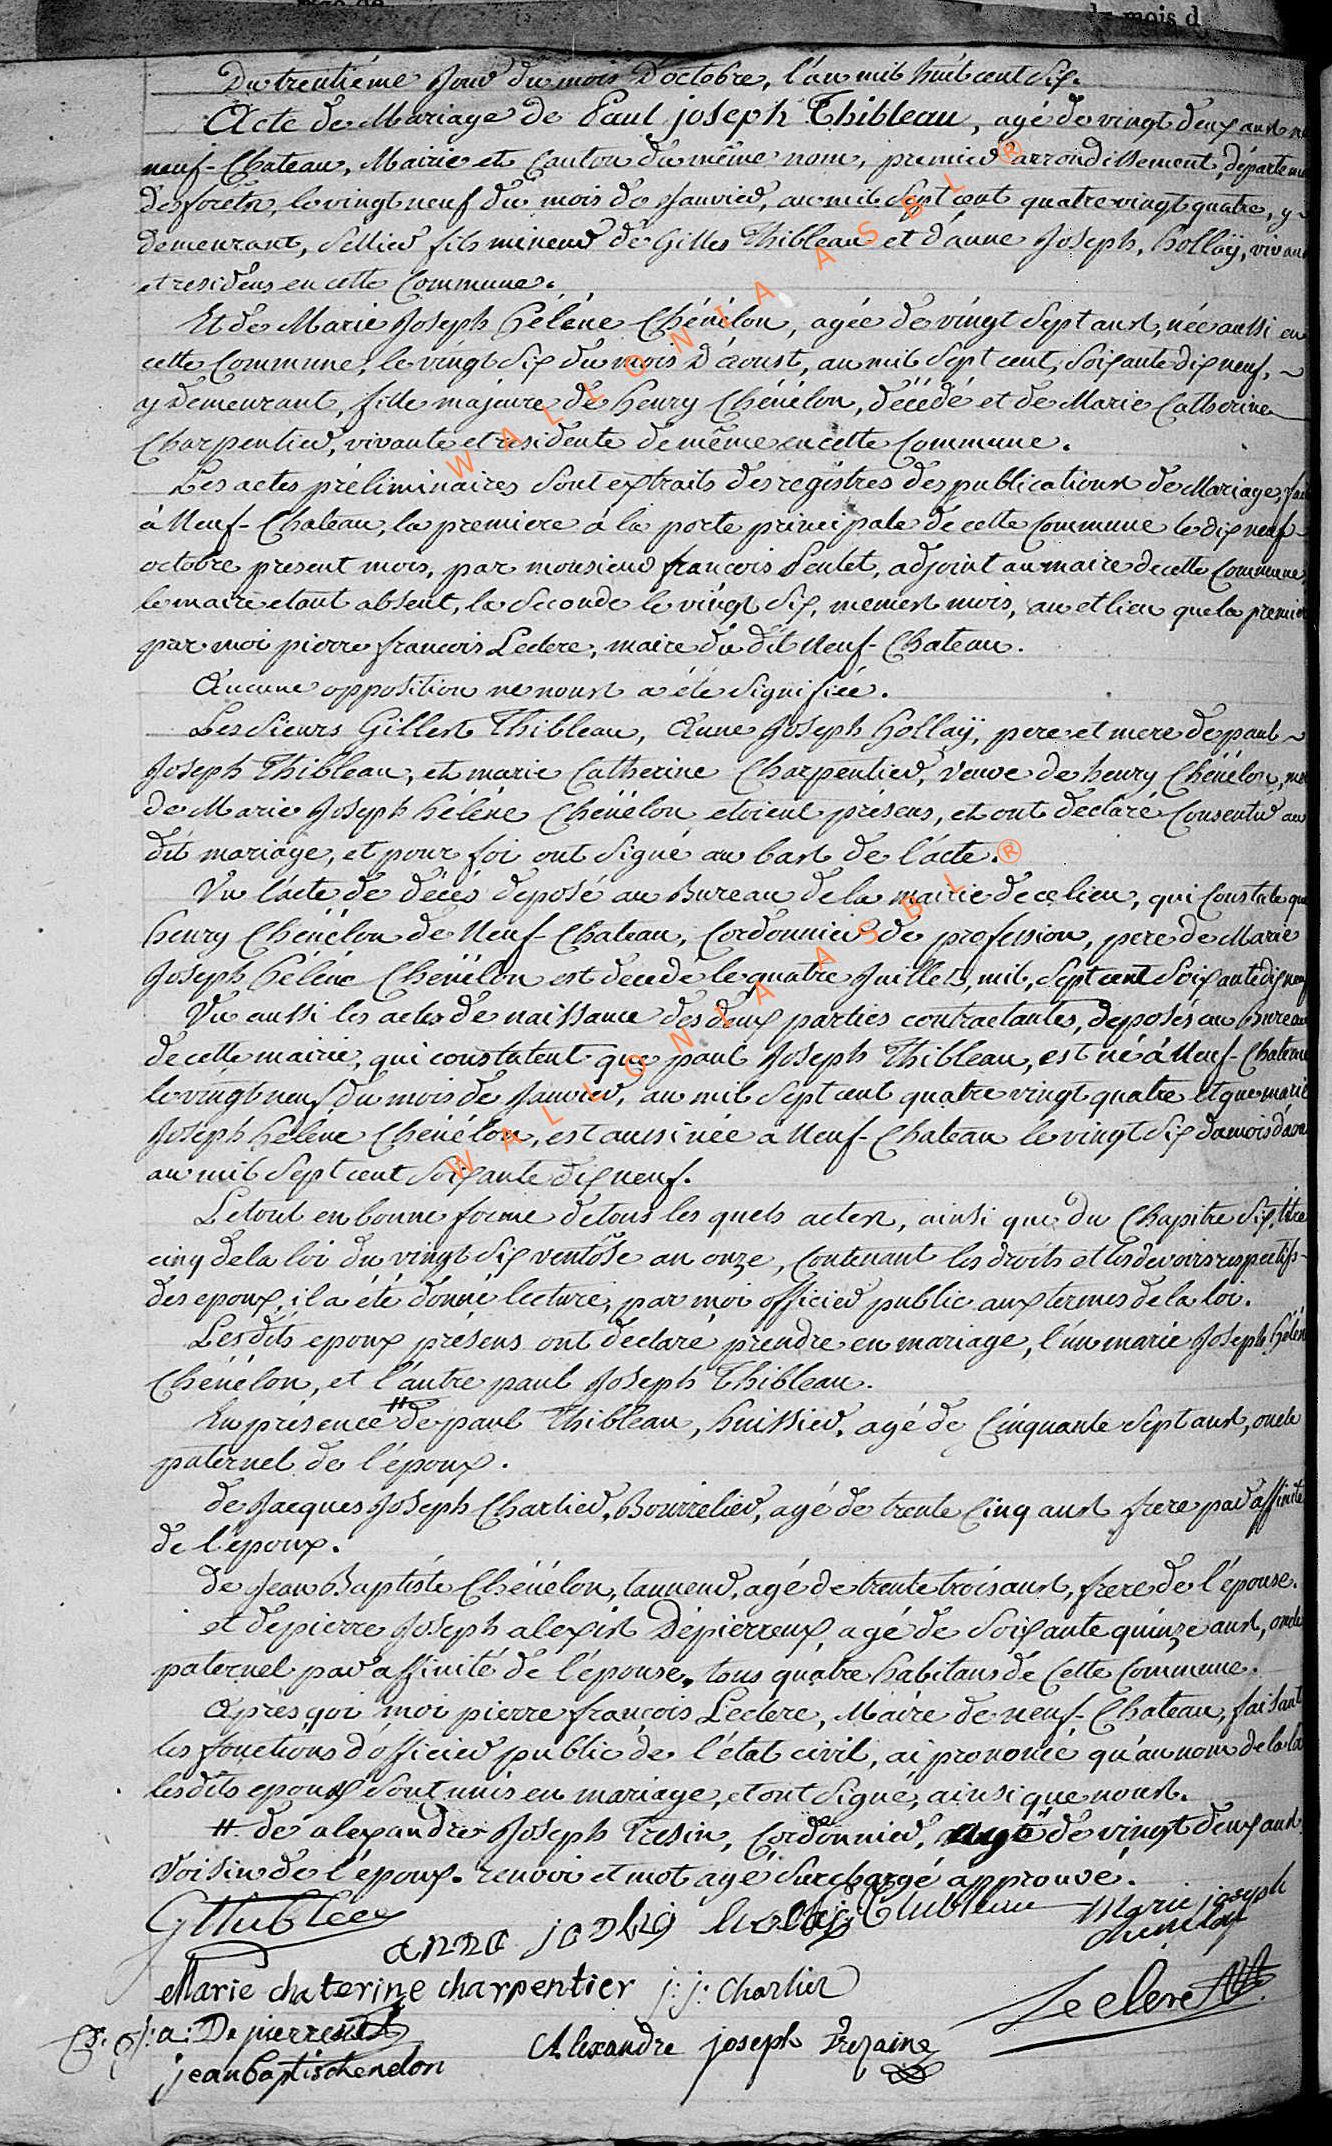 Du trentiéme Jour du mois d'octobre, l'an mil huit cent six.
Acte de Mariage de Paul joseph Thibleau, agé de vingt deux ans
neuf-Chateau, Mairie et Canton du même nom, premier arrondissement, départem
des forêts, le vingt neuf du mois de Janvier, an mil Sept cent quatre vingt quatre, y
demeurant, Sellier fils mineur de Gilles Thibleau et d'anne Joseph, hollaÿ, vivan
et residens en cette Commune.
Et de Marie Joseph hélène Chénélon, agée de vingt Sept ans, née aussi en
cette Commune, le vingt Six du mois d'aoust, an mil Sept cent, Soixante dix neuf,
y demeurant, fille majeure de henry Chénélon, décédé et de Marie Catherine
Charpentier, vivante et residente de même en cette Commune.
Les actes préliminaires Sont extraits des registres des publications de Mariage, fai
à Neuf-Chateau, la premiere à la porte principale de cette Commune le dix neuf
octobre present mois, par monsieur françois Pentet, adjoint au maire de cette Commune
le maire etant absent, la Seconde le vingt Six, memes mois, an et lieu que la premier
par moi pierre françois Leclere, maire du dit Neuf-Chateau.
Aucune opposition ne nous a été Signifiée.
Les Sieurs Gilles Thibleau, Anne Joseph hollaÿ, pere et mere de paul
Joseph Thibleau, et marie Catherine Charpentier, veuve de henry Chénélon, me
de Marie Joseph hélène Chénélon etoient présens, et ont declaré Consentir au
dit mariage, et pour foi ont Signé au bas de l'acte.
Vu l'acte de décés deposé au Bureau de la mairie de ce lieu, qui Constate que
henry Chénélon de Neuf-Chateau, Cordonnier de profession, pere de Marie
Joseph hélène Chénélon est decedé le quatre Juillet, mil, Sept cent Soixante dix neuf
Vu aussi les actes de naissance des deux parties contractantes, deposés au Bureau
de cette mairie, qui constatent que paul Joseph Thibleau, est né à Neuf-Chateau
le vingt neuf du mois de Janvier, an mil Sept cent quatre vingt quatre et que marie
Joseph hélène Chénélon, est aussi née à Neuf-Chateau le vingt Six du mois d'aou
an mil Sept cent Soixante dix neuf.
Le tout en bonne forme de tous les quels actes, ainsi que du Chapitre Six, titre
cinq de la loi du vingt Six ventôse an onze, Contenant les droits et les devoirs respectifs
des epoux, il a été donné lecture, par moi officier public aux termes de la loi.
Les dits epoux présens ont déclaré prendre en mariage, l'un marie Joseph hélèn
Chénélon, et l'autre paul Joseph Thibleau.
En présence # de paul Thibleau, huissier, agé de Cinquante Sept ans, oncle
paternel de l'époux.
de Jacques Joseph Charlier, Bourrelier, agé de trente Cinq ans frere par affinité
de l'époux.
de Jean Baptiste Chénélon, tanneur, agé de trente trois ans, frere de l'épouse.
et de pierre Joseph alexis Dépierreux, agé de Soixante quinze ans, oncle
paternel par affinité de l'épouse, tous quatre habitans de Cette Commune.
Après qoi moi pierre françois Leclere, Maire de neuf-Chateau, faisant
les fonctions d'officier public de l'état civil, ai prononcé qu'au nom de la loi
les dits epoux Sont unis en mariage, et ont Signé, ainsi que nous.
# de alexandre Joseph Tresin, Cordonnier, agé de vingt deux ans
Voisin de l'époux. renvoi et mot agé Surchargé approuvé.
G Thibleau
anne joseph hollaÿ Thibleau Marie joseph
chenelon
Marie chaterine charpentier j: j: Charlier
Leclere
p: j: a: Depierreux
Alexandre joseph Trezaine
jean baptist chenelon
WALLONIA ASBL ®
WALLONIA ASBL ®